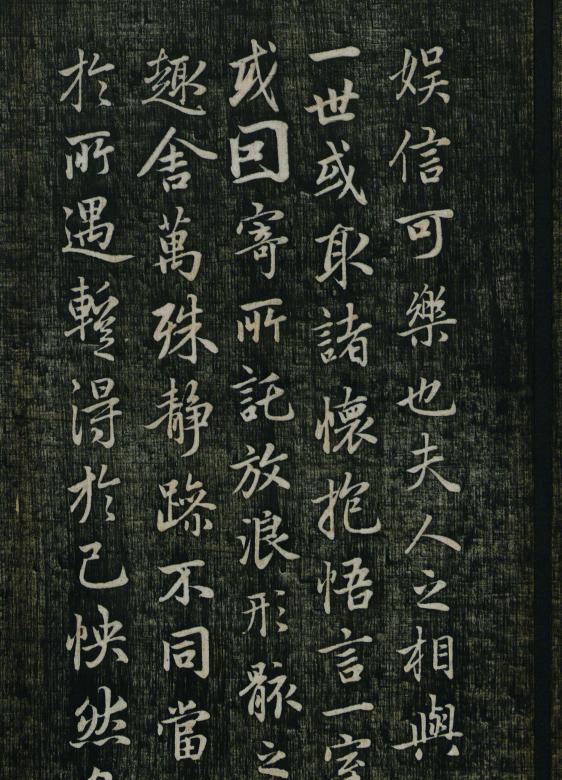 娛信可樂也夫人之相與
一世或取諸懷抱悟言一室
或因寄所託放浪形骸之
趣舍萬殊靜躁不同當
於所遇暫得於己怏然